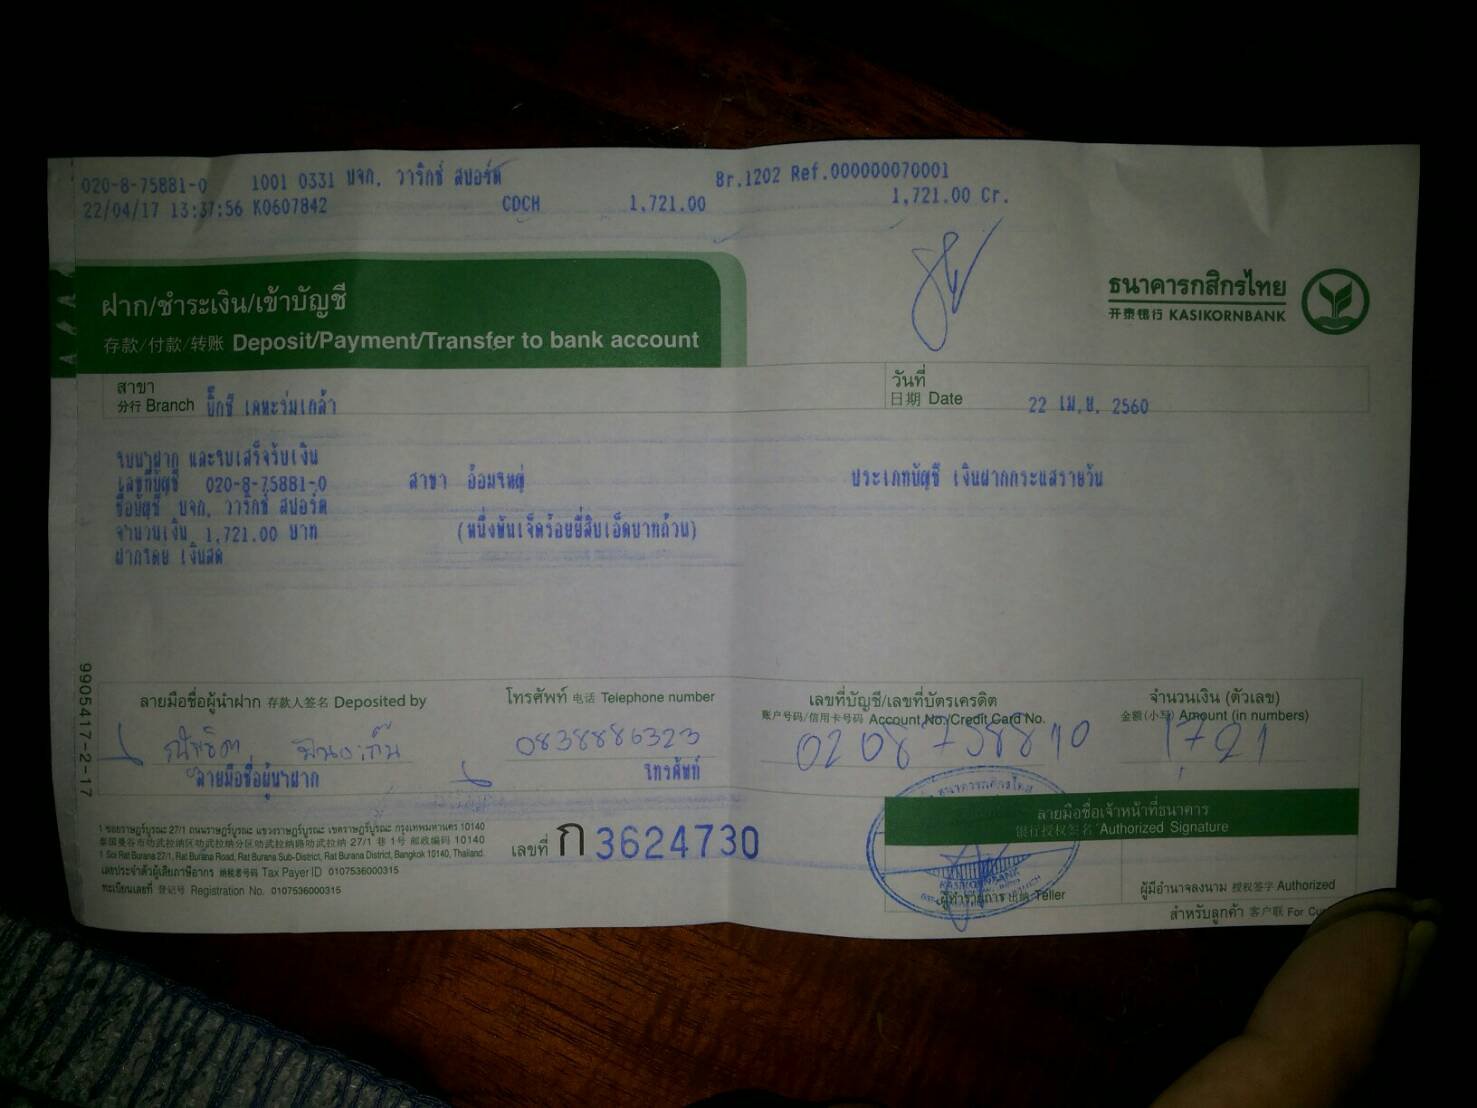 020-8-75881-0 1001 0331 บจก. วาริกซ์ สปอร์ต Br.1202 Ref.000000070001
22/04/17 13:37:56 K0607842 CDCH 1,721.00 1,721.00 Cr.
ฝาก/ชำระเงิน/เข้าบัญชี
存款/付款/转账 Deposit/Payment/Transfer to bank account
ธนาคารกสิกรไทย
开泰银行 KASIKORNBANK
สาขา
分行 Branch บิ๊กซี เคหะร่มเกล้า
วันที่
日期 Date 22 เม.ย. 2560
ใบนำฝาก และใบเสร็จรับเงิน
เลขที่บัญชี 020-8-75881-0 สาขา อ้อมใหญ่ ประเภทบัญชี เงินฝากกระแสรายวัน
ชื่อบัญชี บจก. วาริกซ์ สปอร์ต
จำนวนเงิน 1,721.00 บาท (หนึ่งพันเจ็ดร้อยยี่สิบเอ็ดบาทถ้วน)
ฝากโดย เงินสด
9905417-2-17
ลายมือชื่อผู้นำฝาก 存款人签名 Deposited by
โทรศัพท์ 电话 Telephone number
เลขที่บัญชี/เลขที่บัตรเครดิต
账户号码/信用卡号码 Account No./Credit Card No.
จำนวนเงิน (ตัวเลข)
金额(小写) Amount (in numbers)
0838886323
0208758810
1,721
ลายมือชื่อผู้นำฝาก
โทรศัพท์
1 ซอยราษฎร์บูรณะ 27/1 ถนนราษฎร์บูรณะ แขวงราษฎร์บูรณะ เขตราษฎร์บูรณะ กรุงเทพมหานคร 10140
泰国曼谷市叻武拉纳区叻武拉纳分区叻武拉纳路叻武拉纳 27/1 巷 1号 邮政编码 10140
1 Soi Rat Burana 27/1, Rat Burana Road, Rat Burana Sub-District, Rat Burana District, Bangkok 10140, Thailand.
เลขประจำตัวผู้เสียภาษีอากร 纳税者号码 Tax Payer ID 0107536000315
ทะเบียนเลขที่ 登记号 Registration No. 0107536000315
เลขที่ ก 3624730
ลายมือชื่อเจ้าหน้าที่ธนาคาร
银行授权签名 Authorized Signature
KASIKORNBANK
ผู้ทำรายการ 出纳 Teller
ผู้มีอำนาจลงนาม 授权签字 Authorized
สำหรับลูกค้า 客户联 For